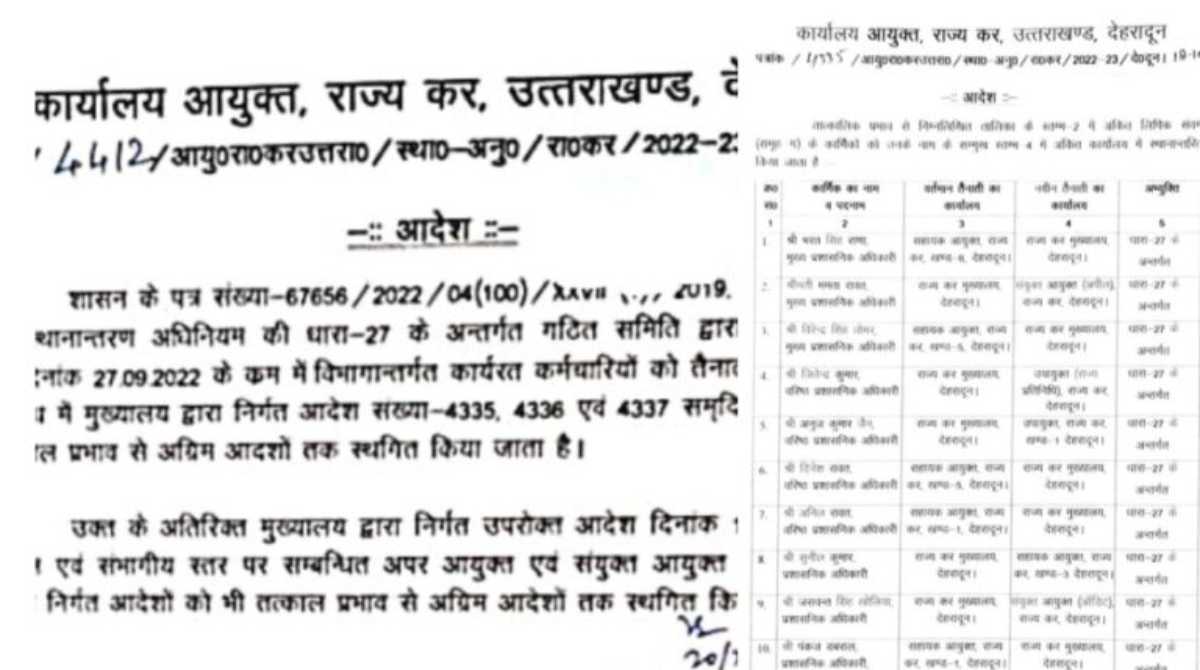 कार्यालय आयुक्त, राज्य कर, उत्तराखण्ड,
4412/आयु0रा0करउत्तरा0/स्था0-अनु0/रा0कर/2022-23
-:: आदेश ::-
शासन के पत्र संख्या-67656/2022/04(100)/XXVII 2019,
थानान्तरण अधिनियम की धारा-27 के अन्तर्गत गठित समिति द्वारा
नांक 27.09.2022 के क्रम में विभागान्तर्गत कार्यरत कर्मचारियों को
में मुख्यालय द्वारा निर्गत आदेश संख्या-4335, 4336 एवं 4337
ल प्रभाव से अग्रिम आदशों तक स्थगित किया जाता है।
उक्त के अतिरिक्त मुख्यालय द्वारा निर्गत उपरोक्त आदेश दिनांक
एवं संभागीय स्तर पर सम्बन्धित अपर आयुक्त एवं संयुक्त आयुक्त
निर्गत आदेशों को भी तत्काल प्रभाव से अग्रिम आदेशों तक स्थगित
20/
कार्यालय आयुक्त, राज्य कर, उत्तराखण्ड, देहरादून
पत्रांक / /आयु0रा0करउत्तरा0/स्था0-अनु0/रा0कर/2022-23/देहदून।
-:: आदेश ::-
तात्कालिक प्रभाव से निम्नलिखित तालिका के स्तम्भ-2 में अंकित लिपिक
के कार्मिकों को उनके नाम के सम्मुख स्तम्भ 4 में अंकित कार्यालय में
किया जाता है
क्र0 सं0 कार्मिक का नाम व पदनाम वर्तमान तैनाती का कार्यालय नवीन तैनाती का कार्यालय अभ्युक्ति
1 2 3 4 5
1. श्री भरत सिंह राणा, मुख्य प्रशासनिक अधिकारी सहायक आयुक्त, राज्य कर, खण्ड-6, देहरादून। राज्य कर मुख्यालय, देहरादून। धारा-27 के अन्तर्गत
2. श्रीमती ममता रावत, मुख्य प्रशासनिक अधिकारी राज्य कर मुख्यालय, देहरादून। संयुक्त आयुक्त (अपील), राज्य कर, देहरादून। धारा-27 के अन्तर्गत
3. श्री विरेन्द्र सिंह तोमर, मुख्य प्रशासनिक अधिकारी सहायक आयुक्त, राज्य कर, खण्ड-5, देहरादून। राज्य कर मुख्यालय, देहरादून। धारा-27 के अन्तर्गत
4. कुमार, वरिष्ठ प्रशासनिक अधिकारी राज्य कर मुख्यालय, देहरादून। उपायुक्त (राज्य प्रतिनिधि), राज्य कर, देहरादून। धारा-27 के अन्तर्गत
5. श्री अनुज कुमार जैन, वरिष्ठ प्रशासनिक अधिकारी राज्य कर मुख्यालय, देहरादून। उपायुक्त, राज्य कर, खण्ड-1 देहरादून। धारा-27 के अन्तर्गत
6. श्री रावत, वरिष्ठ प्रशासनिक अधिकारी सहायक आयुक्त, राज्य कर, खण्ड-5, देहरादून। राज्य कर मुख्यालय, देहरादून। धारा-27 के अन्तर्गत
7. श्री अनिल रावत, वरिष्ठ प्रशासनिक अधिकारी सहायक आयुक्त, राज्य कर, खण्ड-1, देहरादून। राज्य कर मुख्यालय, देहरादून। धारा-27 के अन्तर्गत
8. श्री सुनील कुमार, प्रशासनिक अधिकारी राज्य कर मुख्यालय, देहरादून। सहायक आयुक्त, राज्य कर, खण्ड-3 देहरादून। धारा-27 के अन्तर्गत
9. श्री जसवन्त सिंह प्रशासनिक अधिकारी राज्य कर मुख्यालय, देहरादून। संयुक्त आयुक्त (ऑडिट), राज्य कर, देहरादून। धारा-27 के अन्तर्गत
10. श्री पंकज डबराल, प्रशासनिक अधिकारी, सहायक आयुक्त, राज्य कर, खण्ड-1, देहरादून। राज्य कर मुख्यालय, देहरादून। धारा-27 के